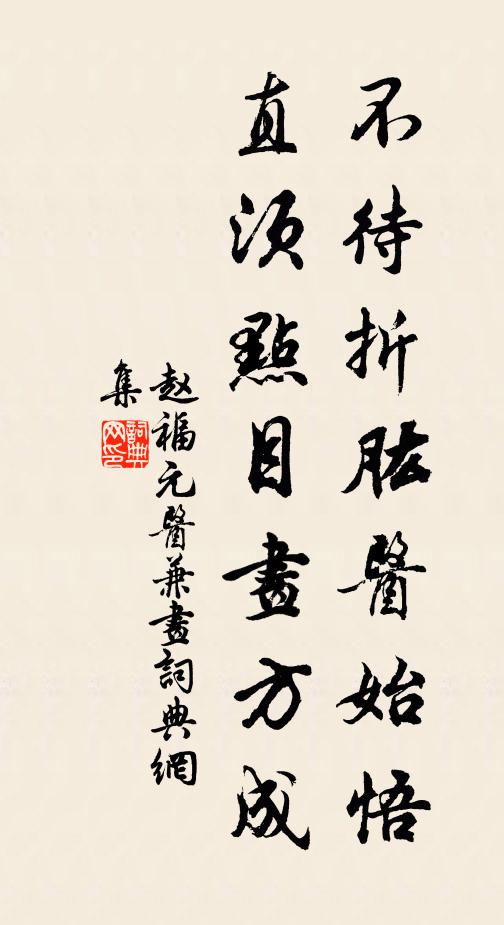 不待折肱醫始悟
直須點目畫方成
赵福元醫兼畫詞典網
集
詞典网印